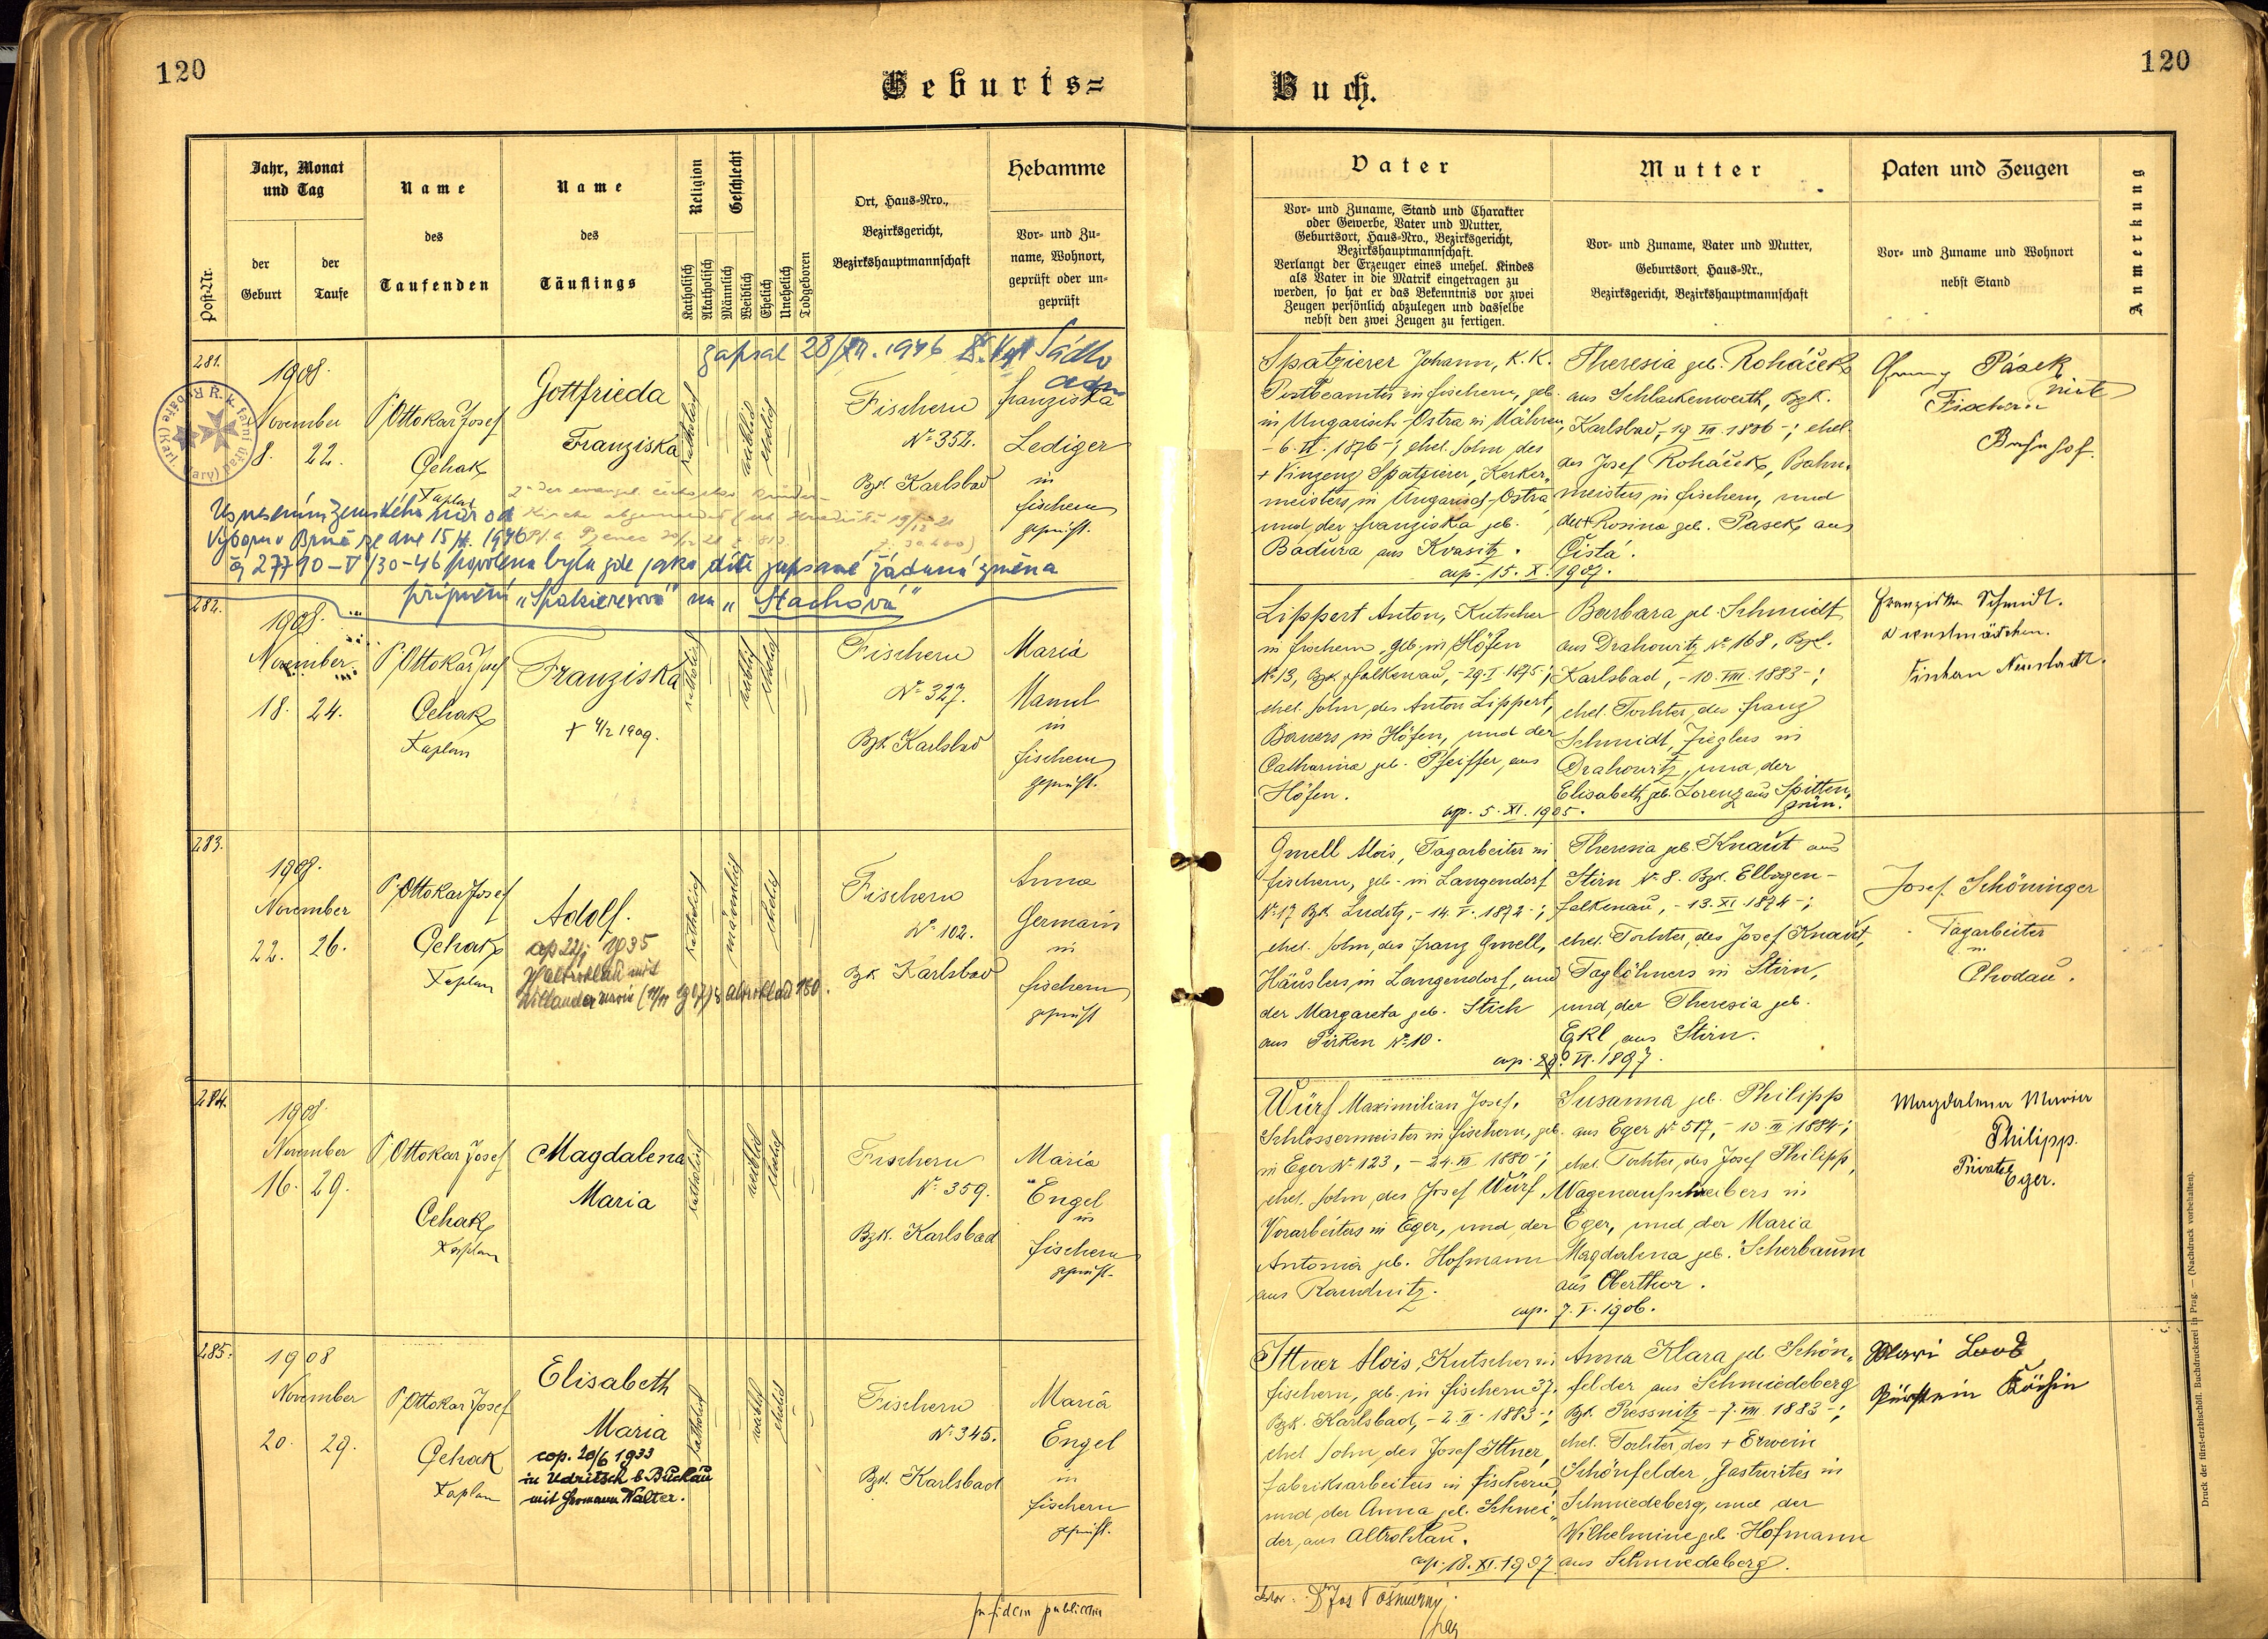 120
120
Geburts=
Buch.
Post-Nr.
Jahr, Monat
und Tag
der
Geburt
der
Taufe
Name
des
Taufenden
Name
des
Täuflings
Religion
Katholisch
Akatholisch
Geschlecht
Männlich
Weiblich
Ehelich
Unehelich
Todgeboren
Ort, Haus-Nro.,
Bezirksgericht,
Bezirkshauptmannschaft
Hebamme
Vor- und Zu-
name, Wohnort,
geprüft oder un-
geprüft
Vater
Vor- und Zuname, Stand und Charakter
oder Gewerbe, Vater und Mutter,
Geburtsort, Haus-Nro., Bezirksgericht,
Bezirkshauptmannschaft.
Verlangt der Erzeuger eines unehel. Kindes
als Vater in die Matrik eingetragen zu
werden, so hat er das Bekenntnis vor zwei
Zeugen persönlich abzulegen und dasselbe
nebst den zwei Zeugen zu fertigen.
Mutter
Vor- und Zuname, Vater und Mutter,
Geburtsort, Haus-Nr.,
Bezirksgericht, Bezirkshauptmannschaft
Paten und Zeugen
Vor- und Zuname und Wohnort
nebst Stand
Anmerkung
zapsal 28/XII. 1946 Sádlo
281.
1908.
November
8. 22.
P. Ottokar Josef
Cehak
Kaplan
Gottfrieda
Franziska
katholisch
weiblich
ehelich
Fischern
No 352.
Bzk. Karlsbad
Franziska
Lediger
in
Fischern
geprüft.
Spatzierer Johann, K. K.
Postbeamter in Fischern, geb.
in Ungarisch-Ostra in Mähren,
ehel. Sohn des
+ Vinzenz Spatzierer, Kerker-
meisters in Ungarisch-Ostra,
und der Franziska geb.
Badura aus Kvasitz.
Theresia geb. Roháček
aus Schlackenwerth, Bzk.
Karlsbad, ehel.
des Josef Roháček, Bahn-
meisters in Fischern, und
der Rosina geb. Pasek aus
Čistá.
cop. 15. X. 1907.
Pásek
Fischern
Bahnhof.
Usnesením zemského nár od
Výboru v Brně ze dne 1946
čj 27790-V/30-46 povolena byla zde jako dítě zapsané žádaná změna
příjmení „Spatziererová" na „Stachová"
282.
1908.
November
18. 24.
P. Ottokar Josef
Cehak
Kaplan
Franziska
+ 4/2 1909.
katholisch
weiblich
ehelich
Fischern
No 327.
Bzk. Karlsbad
Maria
Mannl
in
Fischern
geprüft.
Lippert Anton, Kutscher
in Fischern, geb. in Höfen
No 13, Bzk. Falkenau, - 29. I. 1875 -;
ehel. Sohn des Anton Lippert,
Bauers in Höfen, und der
Catharina geb. Pfeiffer, aus
Höfen.
Barbara geb. Schmidt
aus Drahowitz No 168, Bzk.
Karlsbad, - 10. VIII. 1883 -;
ehel. Tochter des Franz
Schmidt, Zieglers in
Drahowitz, und der
Elisabeth geb. Lorenz aus Spitten-
grün.
cop. 5. XI. 1905.
Franziska Schmidt.
Dienstmädchen.
Fischern Neustadt.
283.
1908.
November
22. 26.
P. Ottokar Josef
Cehak
Kaplan
Adolf.
katholisch
männlich
ehelich
Fischern
No 102.
Bzk. Karlsbad
Anna
Germain
in
Fischern
geprüft
Gmell Alois, Tagarbeiter in
Fischern, geb. in Langendorf
No 17 Bzk. Luditz, - 14. V. 1872 -;
ehel. Sohn des Franz Gmell,
Häuslers in Langendorf, und
der Margareta geb. Stich
aus Pirken No 10.
Theresia geb. Knaut aus
Stirn No 8. Bzk. Elbogen-
Falkenau, - 13. XI. 1874 -;
ehel. Tochter des Josef Knaut,
Taglöhners in Stirn,
und der Theresia geb.
Ekl aus Stirn.
1897.
Josef Schöninger
Tagarbeiter
in
Chodau.
284.
1908.
November
16. 29.
P. Ottokar Josef
Cehak
Kaplan
Magdalena
Maria
katholisch
weiblich
ehelich
Fischern
No 359.
Bzk. Karlsbad
Maria
Engel
in
Fischern
geprüft.
Würf Maximilian Josef,
Schlossermeister in Fischern, geb.
in Eger No 123, 1880 -;
ehel. Sohn des Josef Würf,
Vorarbeiters in Eger, und der
Antonia geb. Hofmann
aus Raudnitz.
Susanna geb. Philipp
aus Eger No 517, 1884 -;
ehel. Tochter des Josef Philipp,
Wagenaufschreibers in
Eger, und der Maria
Magdalena geb. Scherbaum
aus Oberthor.
cop. 7. V. 1906.
Magdalena Maria
Philipp.
Private
Eger.
285.
1908
November
20. 29.
P. Ottokar Josef
Cehak
Kaplan
Elisabeth
Maria
cop. 20/6 1933
in Udritsch b. Buckau
mit Hermann Walter.
katholisch
weiblich
ehelich
Fischern
No 345.
Bzk. Karlsbad
Maria
Engel
in
Fischern
geprüft.
Ittner Alois, Kutscher in
Fischern, geb. in Fischern 37,
Bzk. Karlsbad, - 2. II. 1883 -;
ehel. Sohn des Josef Ittner,
Fabriksarbeiters in Fischern,
und der Anna geb. Schnei-
der, aus Altrohlau.
Anna Klara geb. Schön-
felder aus Schmiedeberg
Bzk. Pressnitz - 7. VIII. 1883 -;
ehel. Tochter des + Erwein
Schönfelder, Gastwirtes in
Schmiedeberg, und der
Wilhelmine geb. Hofmann
aus Schmiedeberg.
cop. 18. XI. 1907
Köchin
In fidem publicam
Druck der fürst-erzbischöfl. Buchdruckerei in Prag. — (Nachdruck vorbehalten).